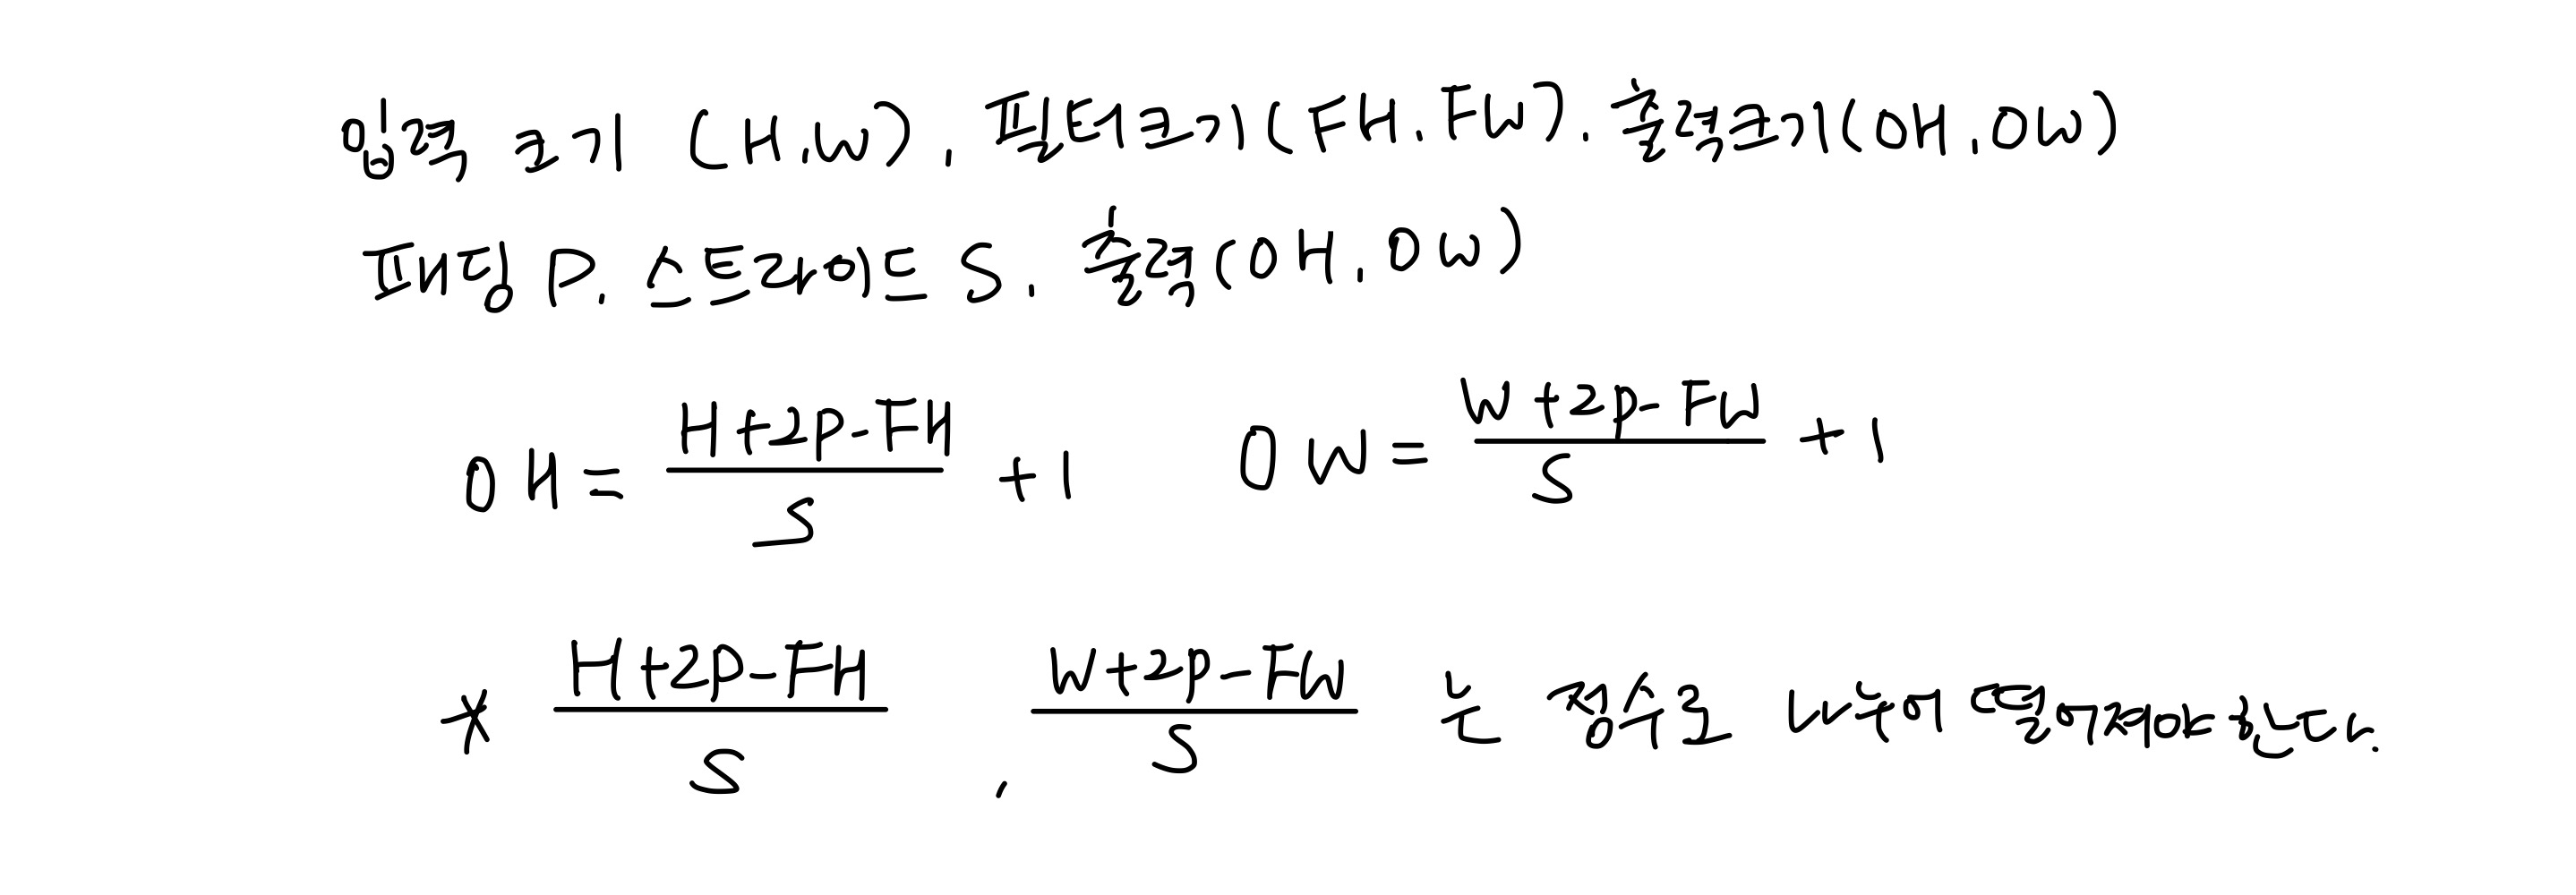 입력 크기 (H,W), 필터크기(FH,FW), 출력크기(OH,OW)
패딩 P, 스트라이드 S, 출력(OH,OW)
OH = (H+2P-FH)/S + 1  OW = (W+2P-FW)/S + 1
* (H+2P-FH)/S , (W+2P-FW)/S 는 정수로 나누어 떨어져야한다.